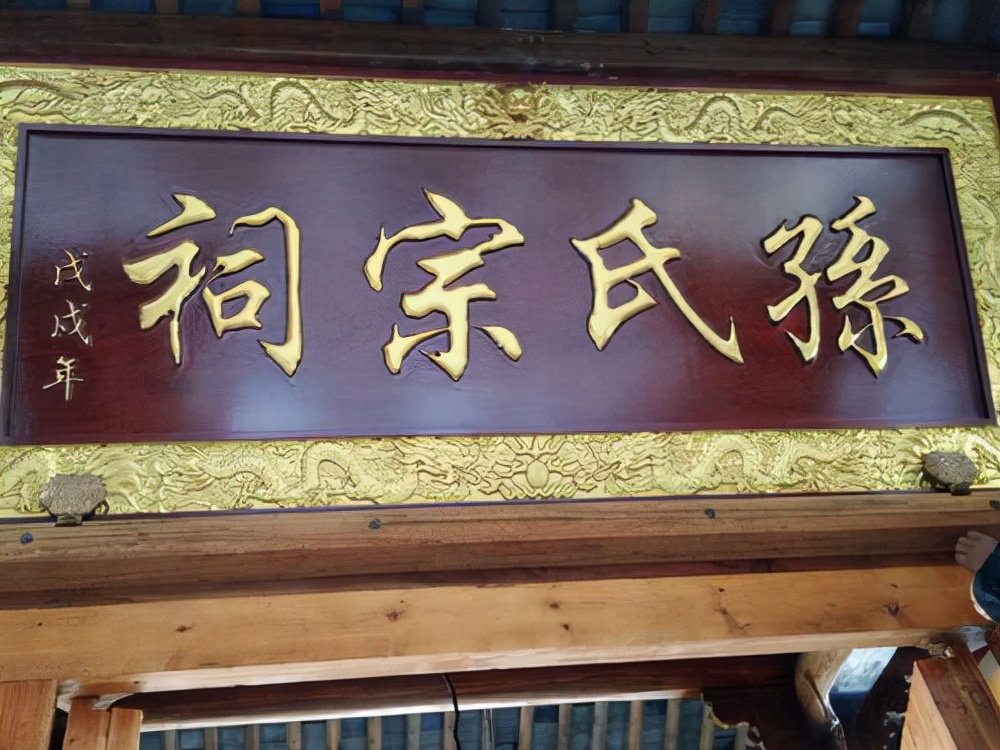 孫氏宗祠
戊戌年